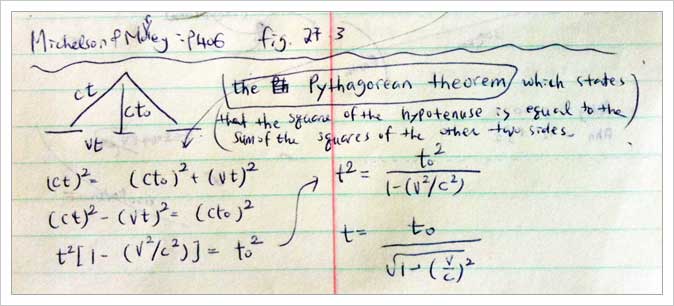 Michelson & Morley : P406 fig. 27.3
ct
cto
vt
the Pythagorean theorem which states
that the square of the hypotenuse is equal to the
sum of the squares of the other two sides.
(ct)² = (cto)² + (vt)²
(ct)² - (vt)² = (cto)²
t²[1 - (v²/c²)] = to²
t² = to² / 1-(v²/c²)
t = to / √1-(v/c)²